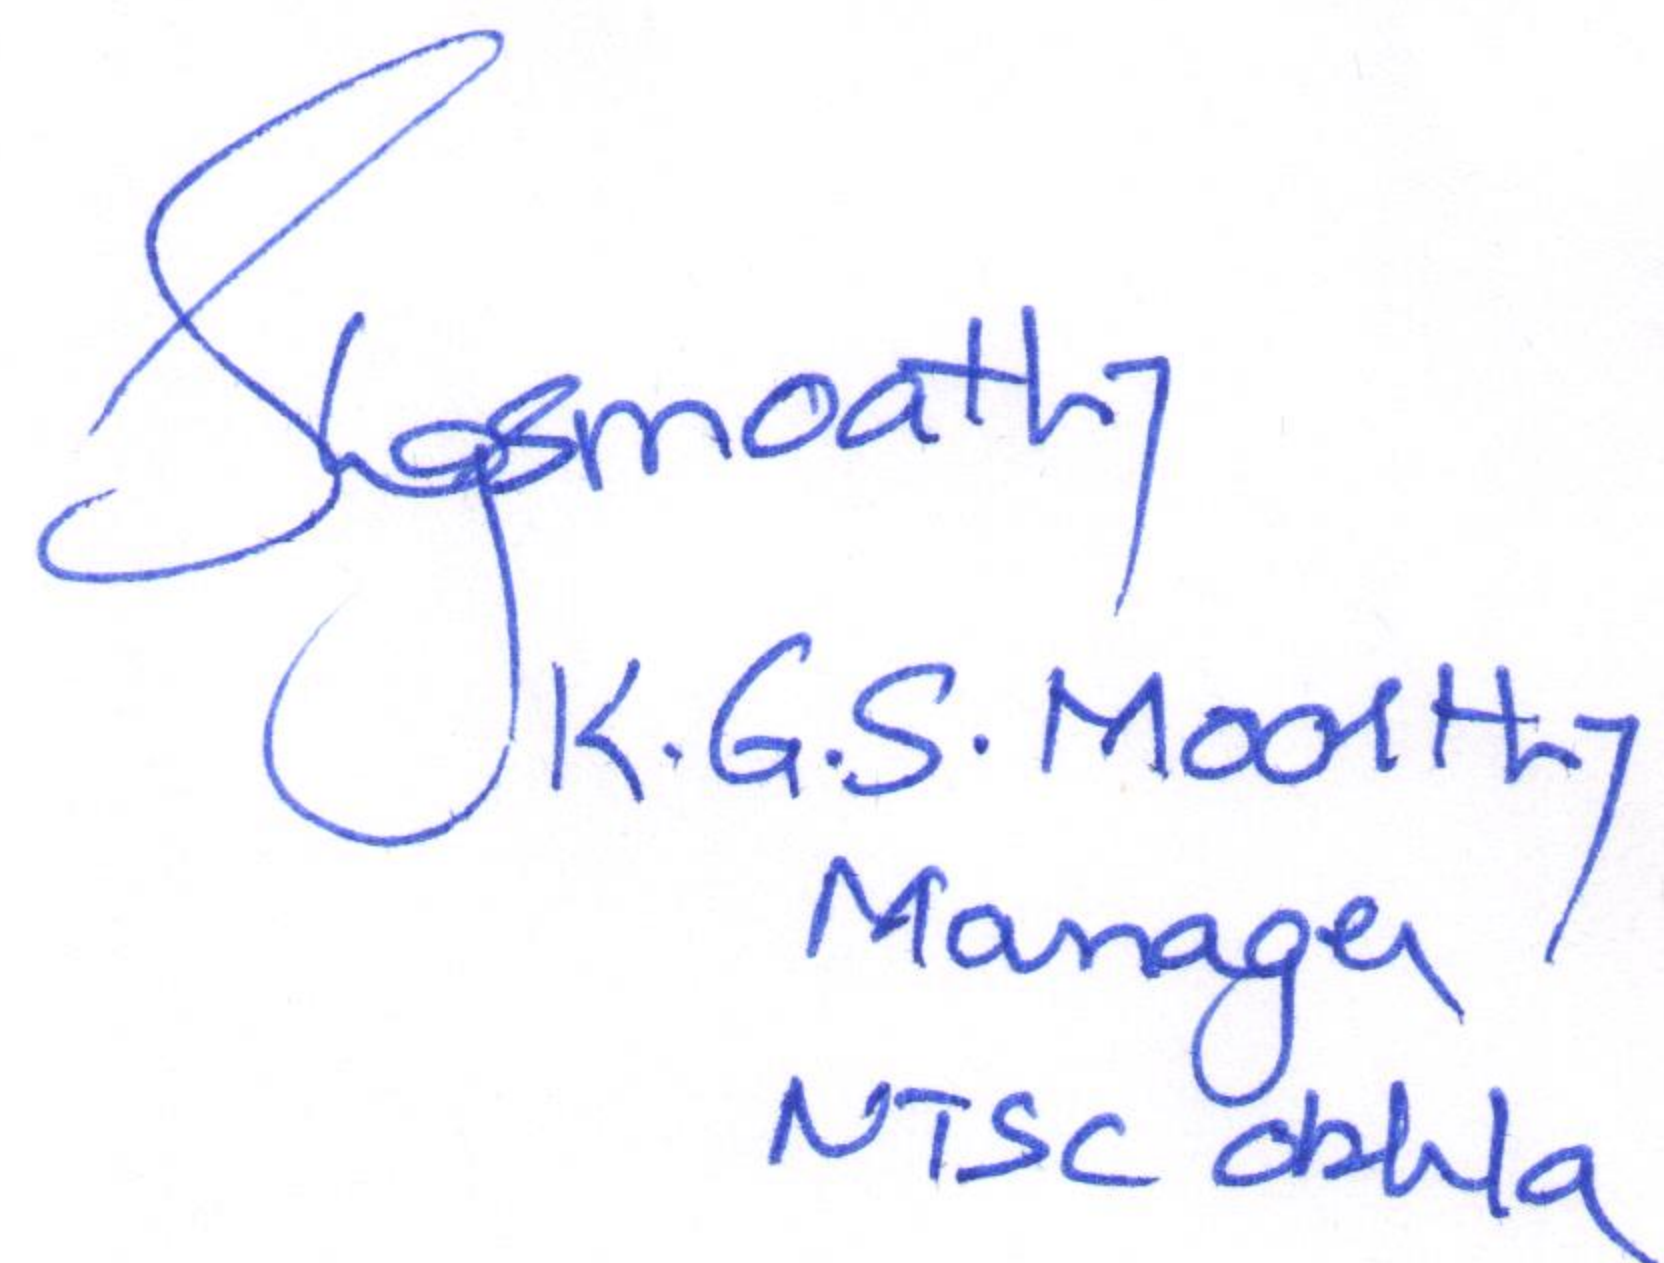 Kgsmoorthy
K.G.S. Moorthy
Manager
NTSC Okhla